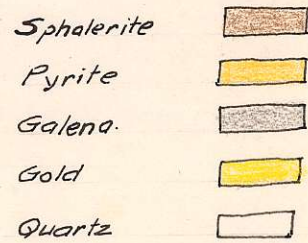 Sphalerite
Pyrite
Galena.
Gold
Quartz